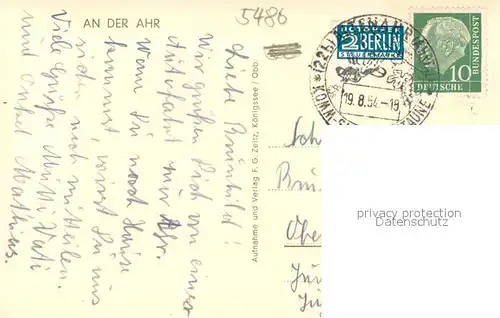 AN DER AHR
5486
Liebe Brunhild!
Wir grüßen Dich von einer
Autofahrt zur Ahr.
Wenn Du nach Hause
kommst, wirst Du uns
noch mitteilen.
Viele Grüße Mutti Vati
und Onkel Mathias.
Aufnahme und Verlag F. G. Zeitz, Königssee / Obb.
NOTOPFER
2 BERLIN
STEUERMARKE
19.8.54.-18
10
DEUTSCHE
BUNDESPOST
Sch
Bru
Obe
privacy protection
Datenschutz